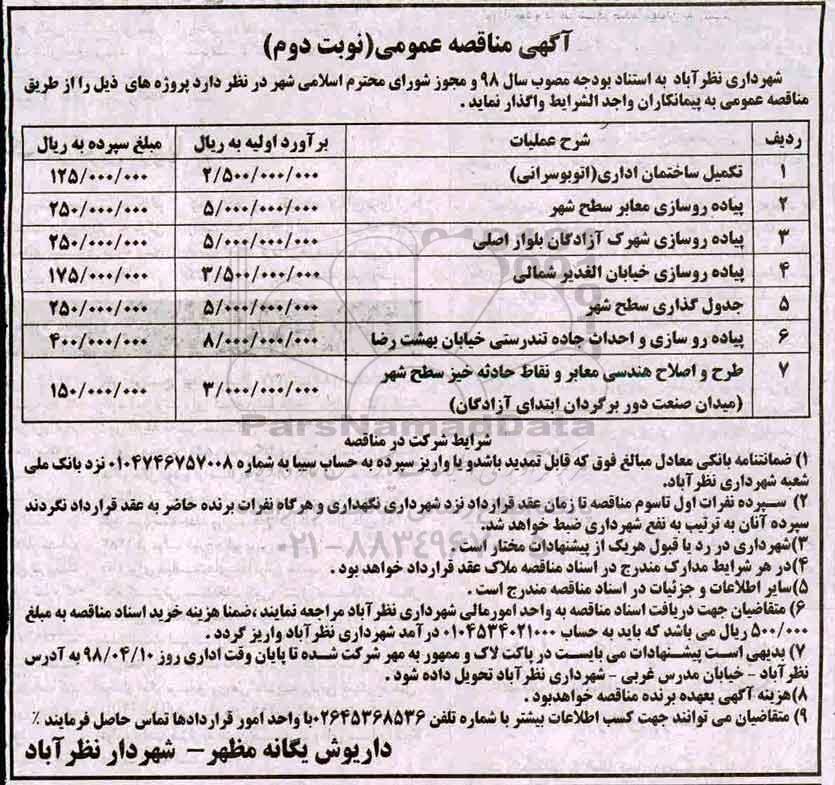 آگهی مناقصه عمومی(نوبت دوم)
شهرداری نظرآباد به استناد بودجه مصوب سال ۹۸ و مجوز شورای محترم اسلامی شهر در نظر دارد پروژه های ذیل را از طریق
مناقصه عمومی به پیمانکاران واجد الشرایط واگذار نماید .
ردیف شرح عملیات برآورد اولیه به ریال مبلغ سپرده به ریال
۱ تکمیل ساختمان اداری(اتوبوسرانی) ۲/۵۰۰/۰۰۰/۰۰۰ ۱۲۵/۰۰۰/۰۰۰
۲ پیاده روسازی معابر سطح شهر ۵/۰۰۰/۰۰۰/۰۰۰ ۲۵۰/۰۰۰/۰۰۰
۳ پیاده روسازی شهرک آزادگان بلوار اصلی ۵/۰۰۰/۰۰۰/۰۰۰ ۲۵۰/۰۰۰/۰۰۰
۴ پیاده روسازی خیابان الغدیر شمالی ۳/۵۰۰/۰۰۰/۰۰۰ ۱۷۵/۰۰۰/۰۰۰
۵ جدول گذاری سطح شهر ۵/۰۰۰/۰۰۰/۰۰۰ ۲۵۰/۰۰۰/۰۰۰
۶ پیاده رو سازی و احداث جاده تندرستی خیابان بهشت رضا ۸/۰۰۰/۰۰۰/۰۰۰ ۴۰۰/۰۰۰/۰۰۰
۷ طرح و اصلاح هندسی معابر و نقاط حادثه خیز سطح شهر
(میدان صنعت دور برگردان ابتدای آزادگان) ۳/۰۰۰/۰۰۰/۰۰۰ ۱۵۰/۰۰۰/۰۰۰
ParsNamadData
شرایط شرکت در مناقصه
۱) ضمانتنامه بانکی معادل مبالغ فوق که قابل تمدید باشدو یا واریز سپرده به حساب سیبا به شماره ۰۱۰۴۷۴۶۷۵۷۰۰۸ نزد بانک ملی
شعبه شهرداری نظرآباد.
۲) سپرده نفرات اول تاسوم مناقصه تا زمان عقد قرارداد نزد شهرداری نگهداری و هرگاه نفرات برنده حاضر به عقد قرارداد نگردند
سپرده آنان به ترتیب به نفع شهرداری ضبط خواهد شد.
۳)شهرداری در رد یا قبول هریک از پیشنهادات مختار است .
۴)در هر شرایط مدارک مندرج در اسناد مناقصه ملاک عقد قرارداد خواهد بود .
۵)سایر اطلاعات و جزئیات در اسناد مناقصه مندرج است .
۶) متقاضیان جهت دریافت اسناد مناقصه به واحد امورمالی شهرداری نظرآباد مراجعه نمایند،ضمنا هزینه خرید اسناد مناقصه به مبلغ
۵۰۰/۰۰۰ ریال می باشد که باید به حساب ۰۱۰۴۵۳۴۰۲۱۰۰۰ درآمد شهرداری نظرآباد واریز گردد .
۷) بدیهی است پیشنهادات می بایست در پاکت لاک و ممهور به مهر شرکت شده تا پایان وقت اداری روز ۹۸/۰۴/۱۰ به آدرس
نظرآباد - خیابان مدرس غربی - شهرداری نظرآباد تحویل داده شود .
۸)هزینه آگهی بعهده برنده مناقصه خواهدبود .
۹) متقاضیان می توانند جهت کسب اطلاعات بیشتر با شماره تلفن ۰۲۶۴۵۳۶۸۵۳۶با واحد امور قراردادها تماس حاصل فرمایند ٪
داریوش یگانه مظهر– شهردار نظرآباد